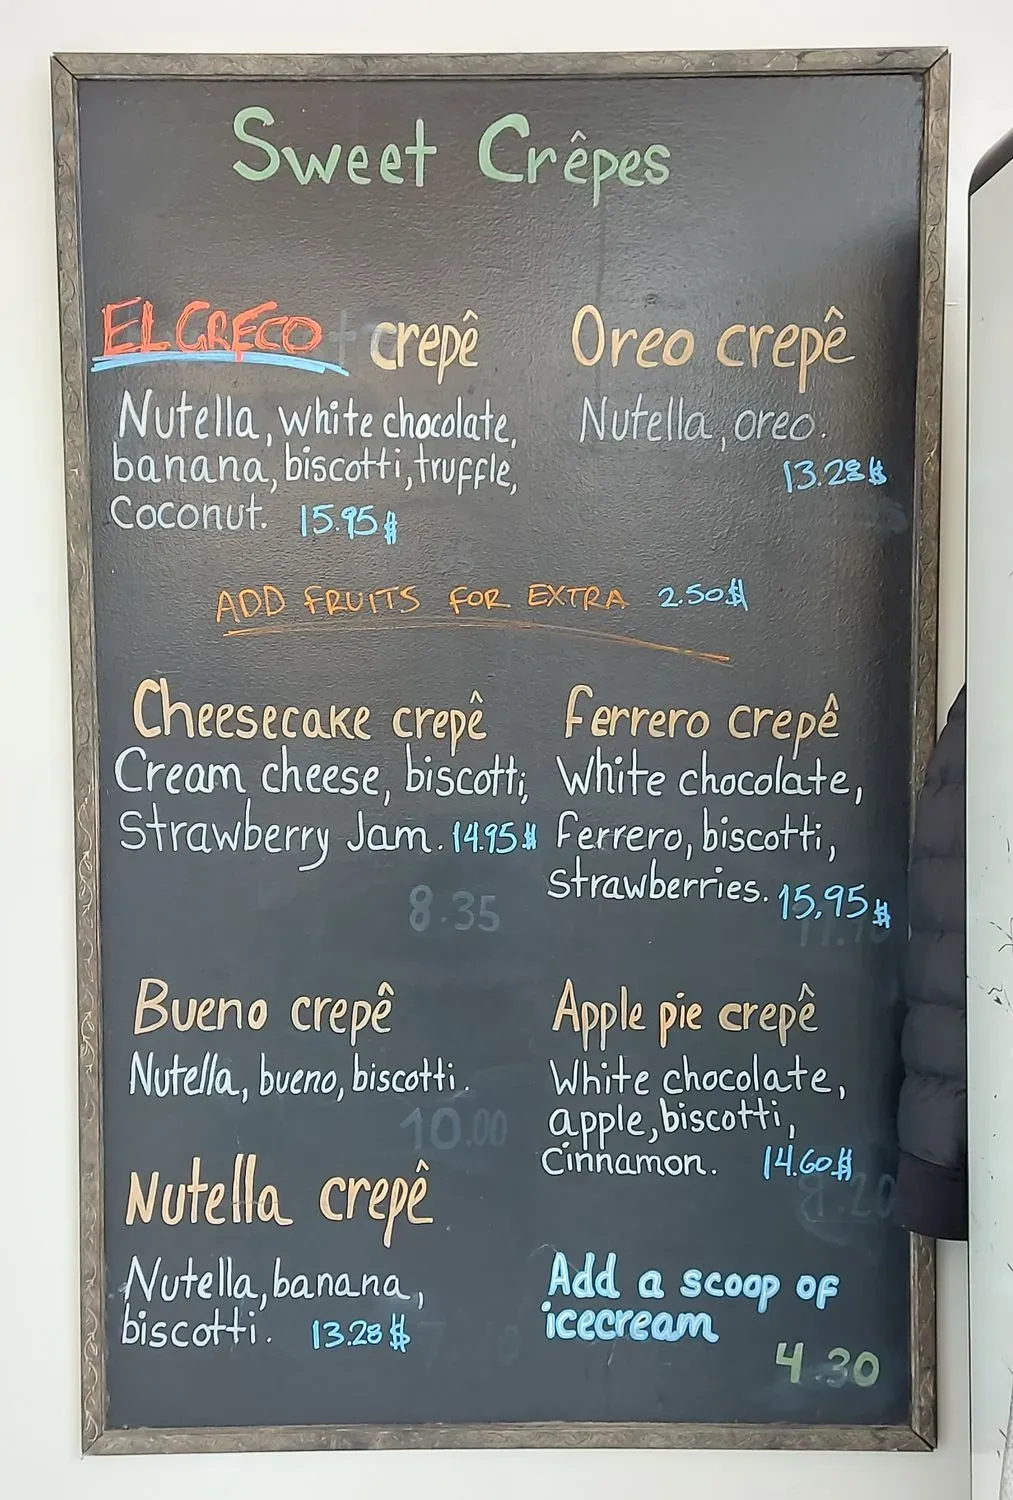 Sweet Crêpes
EL GRECO crepê
Nutella, white chocolate,
banana, biscotti, truffle,
Coconut. 15.95$
Oreo crepê
Nutella, oreo.
13.28$
ADD FRUITS FOR EXTRA 2.50$
Cheesecake crepê
Cream cheese, biscotti,
Strawberry Jam. 14.95$
8.35
Ferrero crepê
White chocolate,
Ferrero, biscotti,
Strawberries. 15.95$
Bueno crepê
Nutella, bueno, biscotti.
10.00
Apple pie crepê
White chocolate,
apple, biscotti,
Cinnamon. 14.60$
Nutella crepê
Nutella, banana,
biscotti. 13.28$
Add a scoop of
icecream
4.30